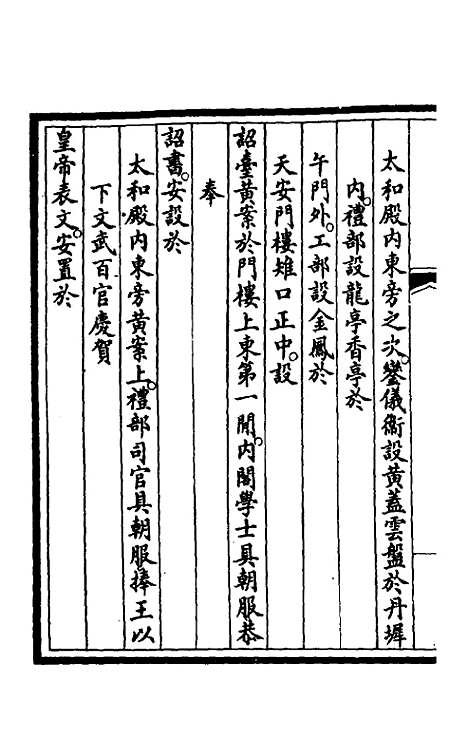 太和殿內東旁之次。鑾儀衞設黃蓋雲盤於丹墀
內。禮部設龍亭香亭於
午門外。工部設金鳳於
天安門樓雉口正中。設
詔臺黃案於門樓上東第一間。內閣學士具朝服恭
奉
詔書。安設於
太和殿內東旁黃案上。禮部司官具朝服捧王以
下文武百官慶賀
皇帝表文。安置於